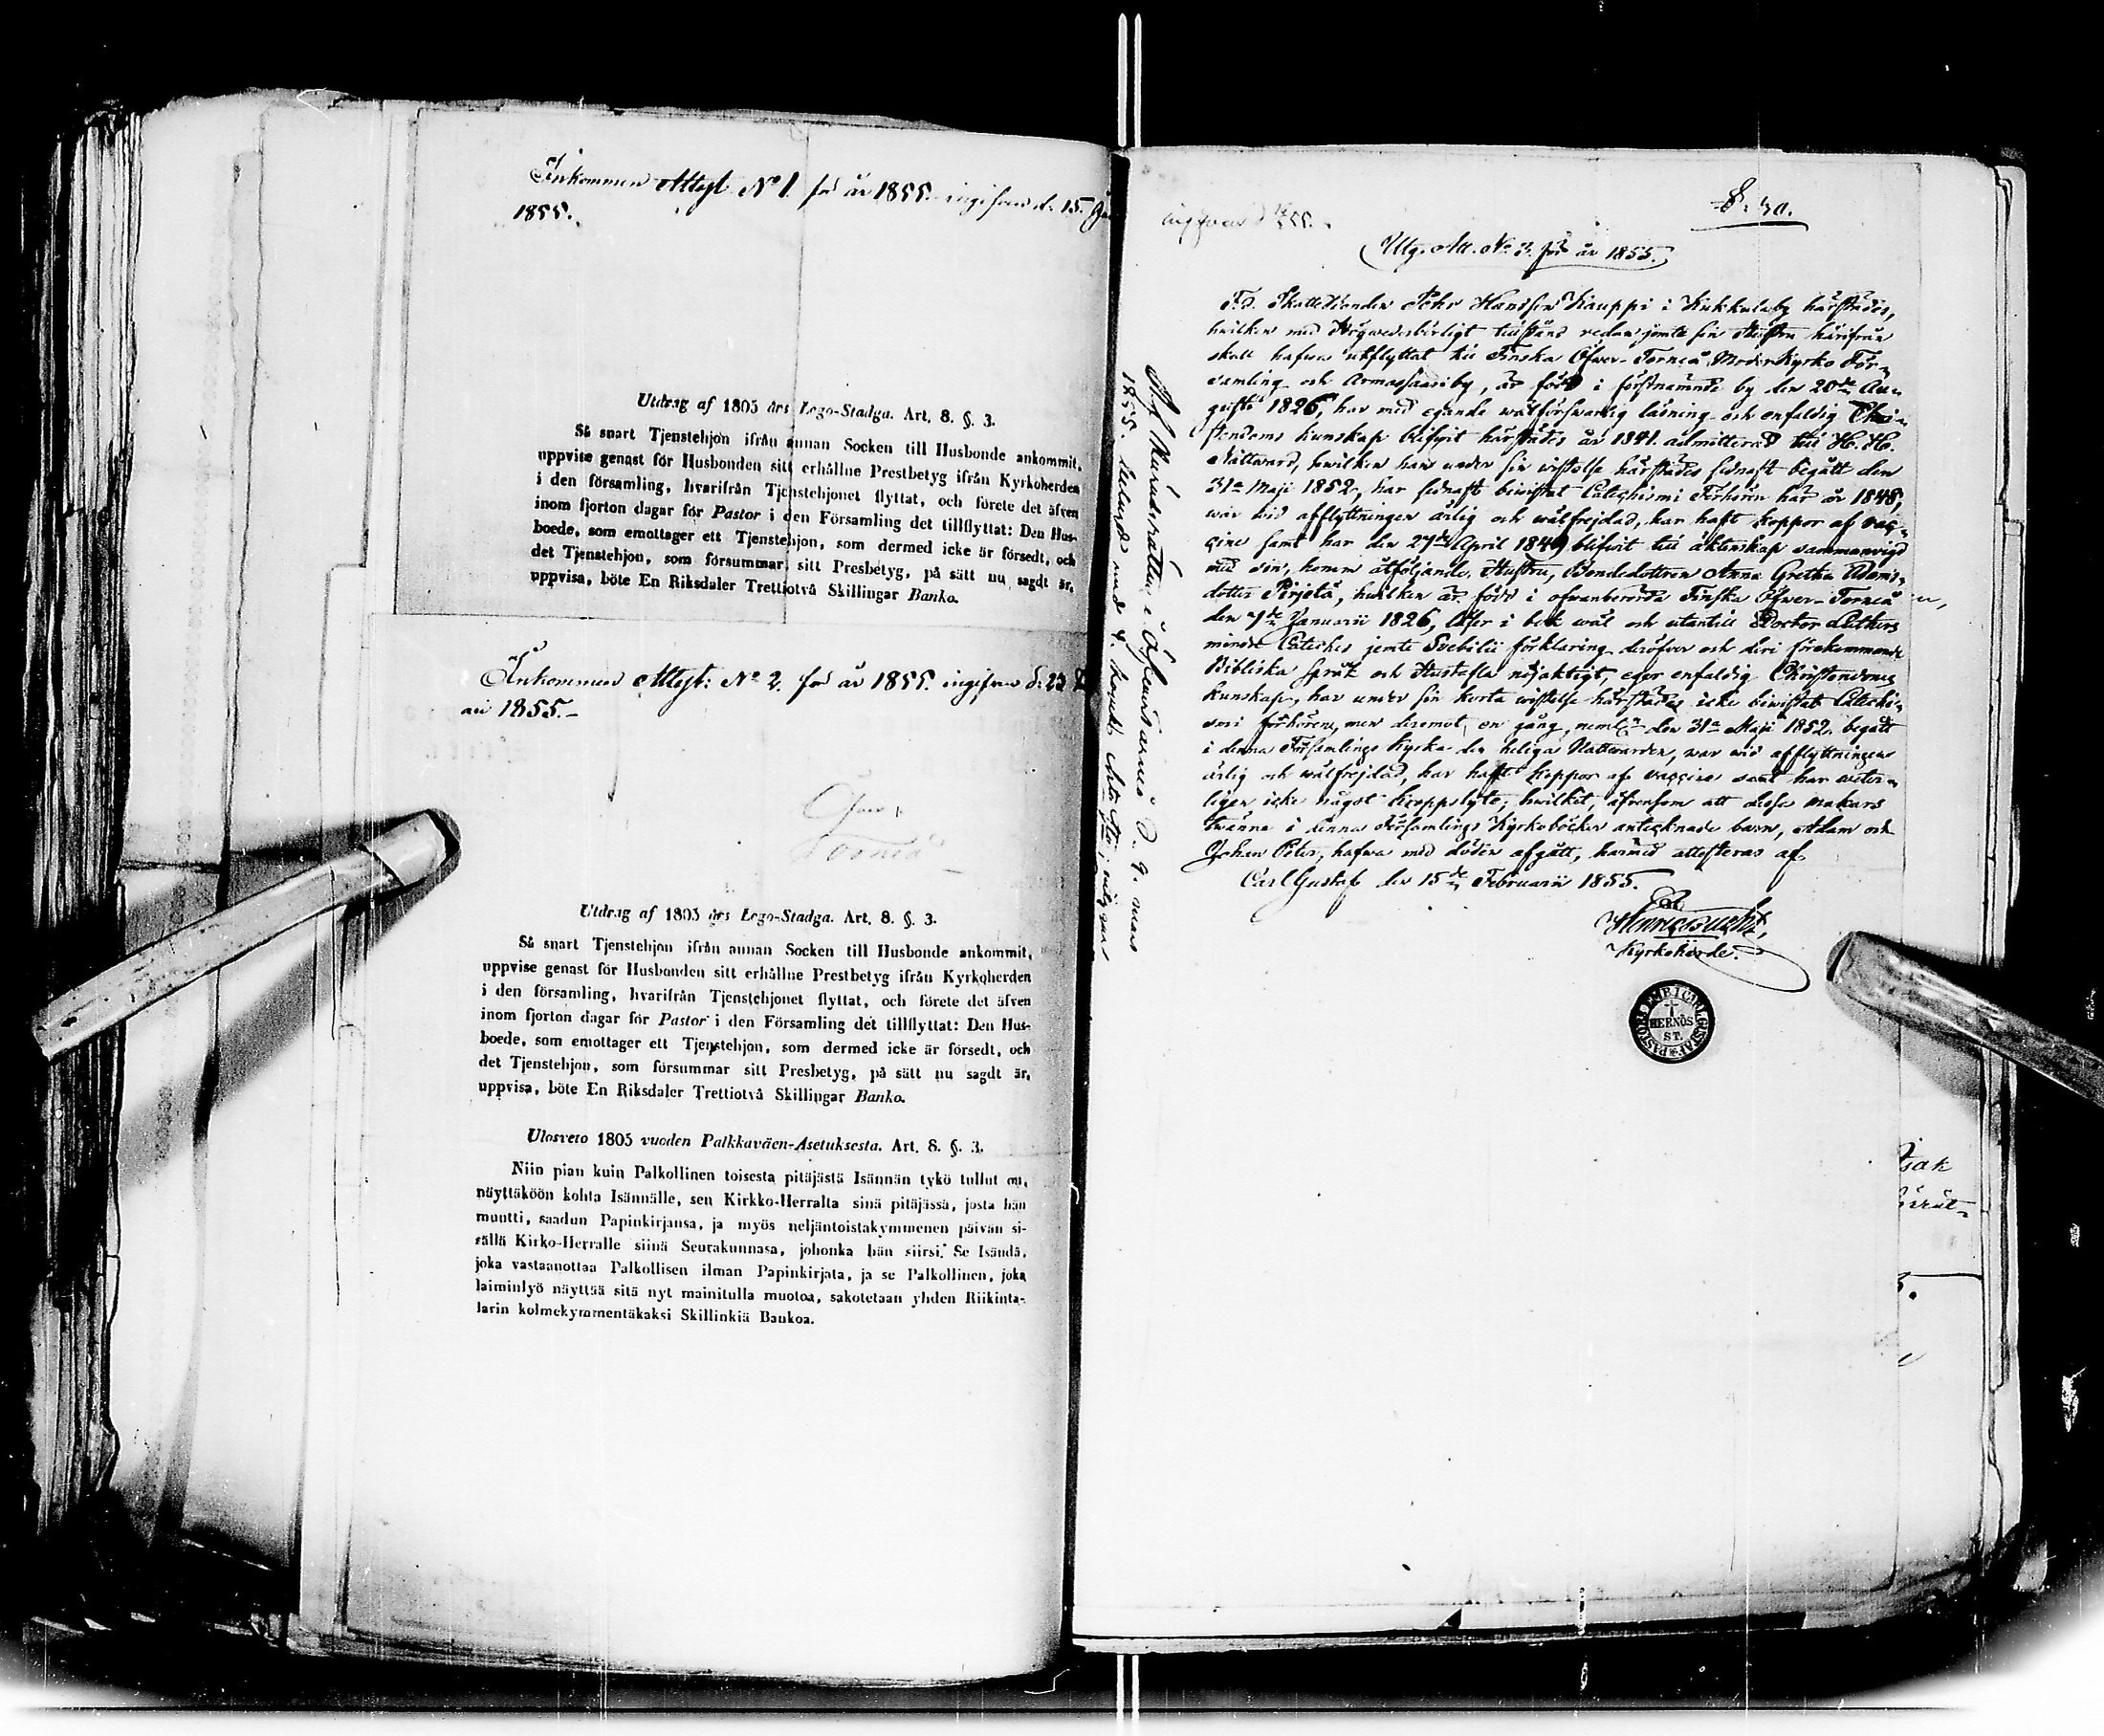 Inkommen Attest No 1. för år 1855. ingifven d. 15.
1855.
Utdrag af 1805 års Lego-Stadga. Art. 8. §. 3.
Så snart Tjenstehjon ifrån annan Socken till Husbonde ankommit,
uppvise genast för Husbonden sitt erhållne Prestbetyg ifrån Kyrkoherden
i den församling, hvarifrån Tjenstehjonet flyttat, och förete det äfven
inom fjorton dagar för Pastor i den Församling det tillflyttat: Den Hus-
boede, som emottager ett Tjenstehjon, som dermed icke är försedt, och
det Tjenstehjon, som försummar sitt Presbetyg, på sätt nu sagdt är,
uppvisa, böte En Riksdaler Trettiotvå Skillingar Banko.
Inkommen Attest: No 2. för år 1855. ingifven d. 23
ari 1855.-
Öfver
Torneå
Utdrag af 1805 års Lego-Stadga. Art. 8. §. 3.
Så snart Tjenstehjon ifrån annan Socken till Husbonde ankommit,
uppvise genast för Husbonden sitt erhållne Prestbetyg ifrån Kyrkoherden
i den församling, hvarifrån Tjenstehjonet flyttat, och förete det äfven
inom fjorton dagar för Pastor i den Församling det tillflyttat: Den Hus-
boede, som emottager ett Tjenstehjon, som dermed icke är försedt, och
det Tjenstehjon, som försummar sitt Presbetyg, på sätt nu sagdt är,
uppvisa, böte En Riksdaler Trettiotvå Skillingar Banko.
Ulosveto 1805 vuoden Palkkaväen-Asetuksesta. Art. 8. §. 3.
Niin pian kuin Palkollinen toisesta pitäjästä Isännän tykö tullut on,
näyttäköön kohta Isännälle, sen Kirkko-Herralta sinä pitäjässä, josta hän
muutti, saadun Papinkirjansa, ja myös neljäntoistakymmenen päivän si-
sällä Kirko-Herralle siinä Seurakunnasa, johonka hän siirsi. Se Isändä,
joka vastaanottaa Palkollisen ilman Papinkirjata, ja se Palkollinen, joka
laiminlyö näyttää sitä nyt mainitulla muotoa, sakotetaan yhden Riikinta-
larin kolmekymmentäkaksi Skillinkiä Bankoa.
S: 30.
Utg. Att. No 3. för år 1855.
F.d. Skattebonden Pehr Hansson Kauppi i Kukkulaby härstädes,
hwilken med Högwederbörligt tillstånd redan jemte sin Hustru härifrån
skall hafwa utflyttat till Finska Öfwer-Torneå Moder Kyrko För-
samling och Armassaari by, är född i förstnämnde by den 20de Au-
gusti 1826, har med egande wälförswarlig läsning och enfaldig Chri-
stendoms kunskap blifvit härstädes år 1841. admitterad till H. H.
Nattward, hwilken han under sin wistelse härstädes sednast begått den
31a Maji 1852, har sednast biwistat Catechismi Förhören här år 1848,
war wid afflyttningen ärlig och wälfrejdad, har haft koppor af vac-
cine samt har den 27de April 1849 blifwit till äktenskap sammanvigd
med sin, honom åtföljande, Hustru, Bondedottren Anna Gretha Adams-
dotter Pirjetä, hwilken är född i ofwanberörda Finska Öfwer-Torneå
den 7de Januarii 1826, läser i bok wäl och utantill Doctor Luthers
mindre Cateches jemte Svebilii förklaring deröfver och deri förekommande
Bibliska språk och Hustafla nöjaktigt, eger enfaldig Christendoms
kunskap, har under sin korta wistelse härstädes icke biwistat Catechi-
smi förhören, men deremot en gång, neml. den 31a Maji 1852. begått
i denna Församlings Kyrka den heliga Nattwarden, war wid afflyttningen
ärlig och wälfrejdad, har haft koppor af vaccine samt har weter-
ligen icke något kroppslyte; hwilket, äfvensom att desse makars
twänne i denna Församlings Kyrkoböcker antecknade barn, Adam och
Johan Petter, hafwa med döden afgått, härmed attesteras af.
Carl Gustaf den 15de Februarii 1855.
Kyrkoherde.
PASTORS EMB. I CARL GUSTAF
HERNÖS
ST.
1855.